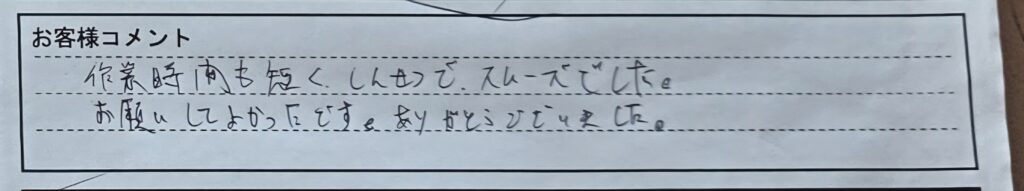 お客様コメント
作業時間も短く、しんせつで、スムーズでした。
お願いしてよかったです。ありがとうございました。